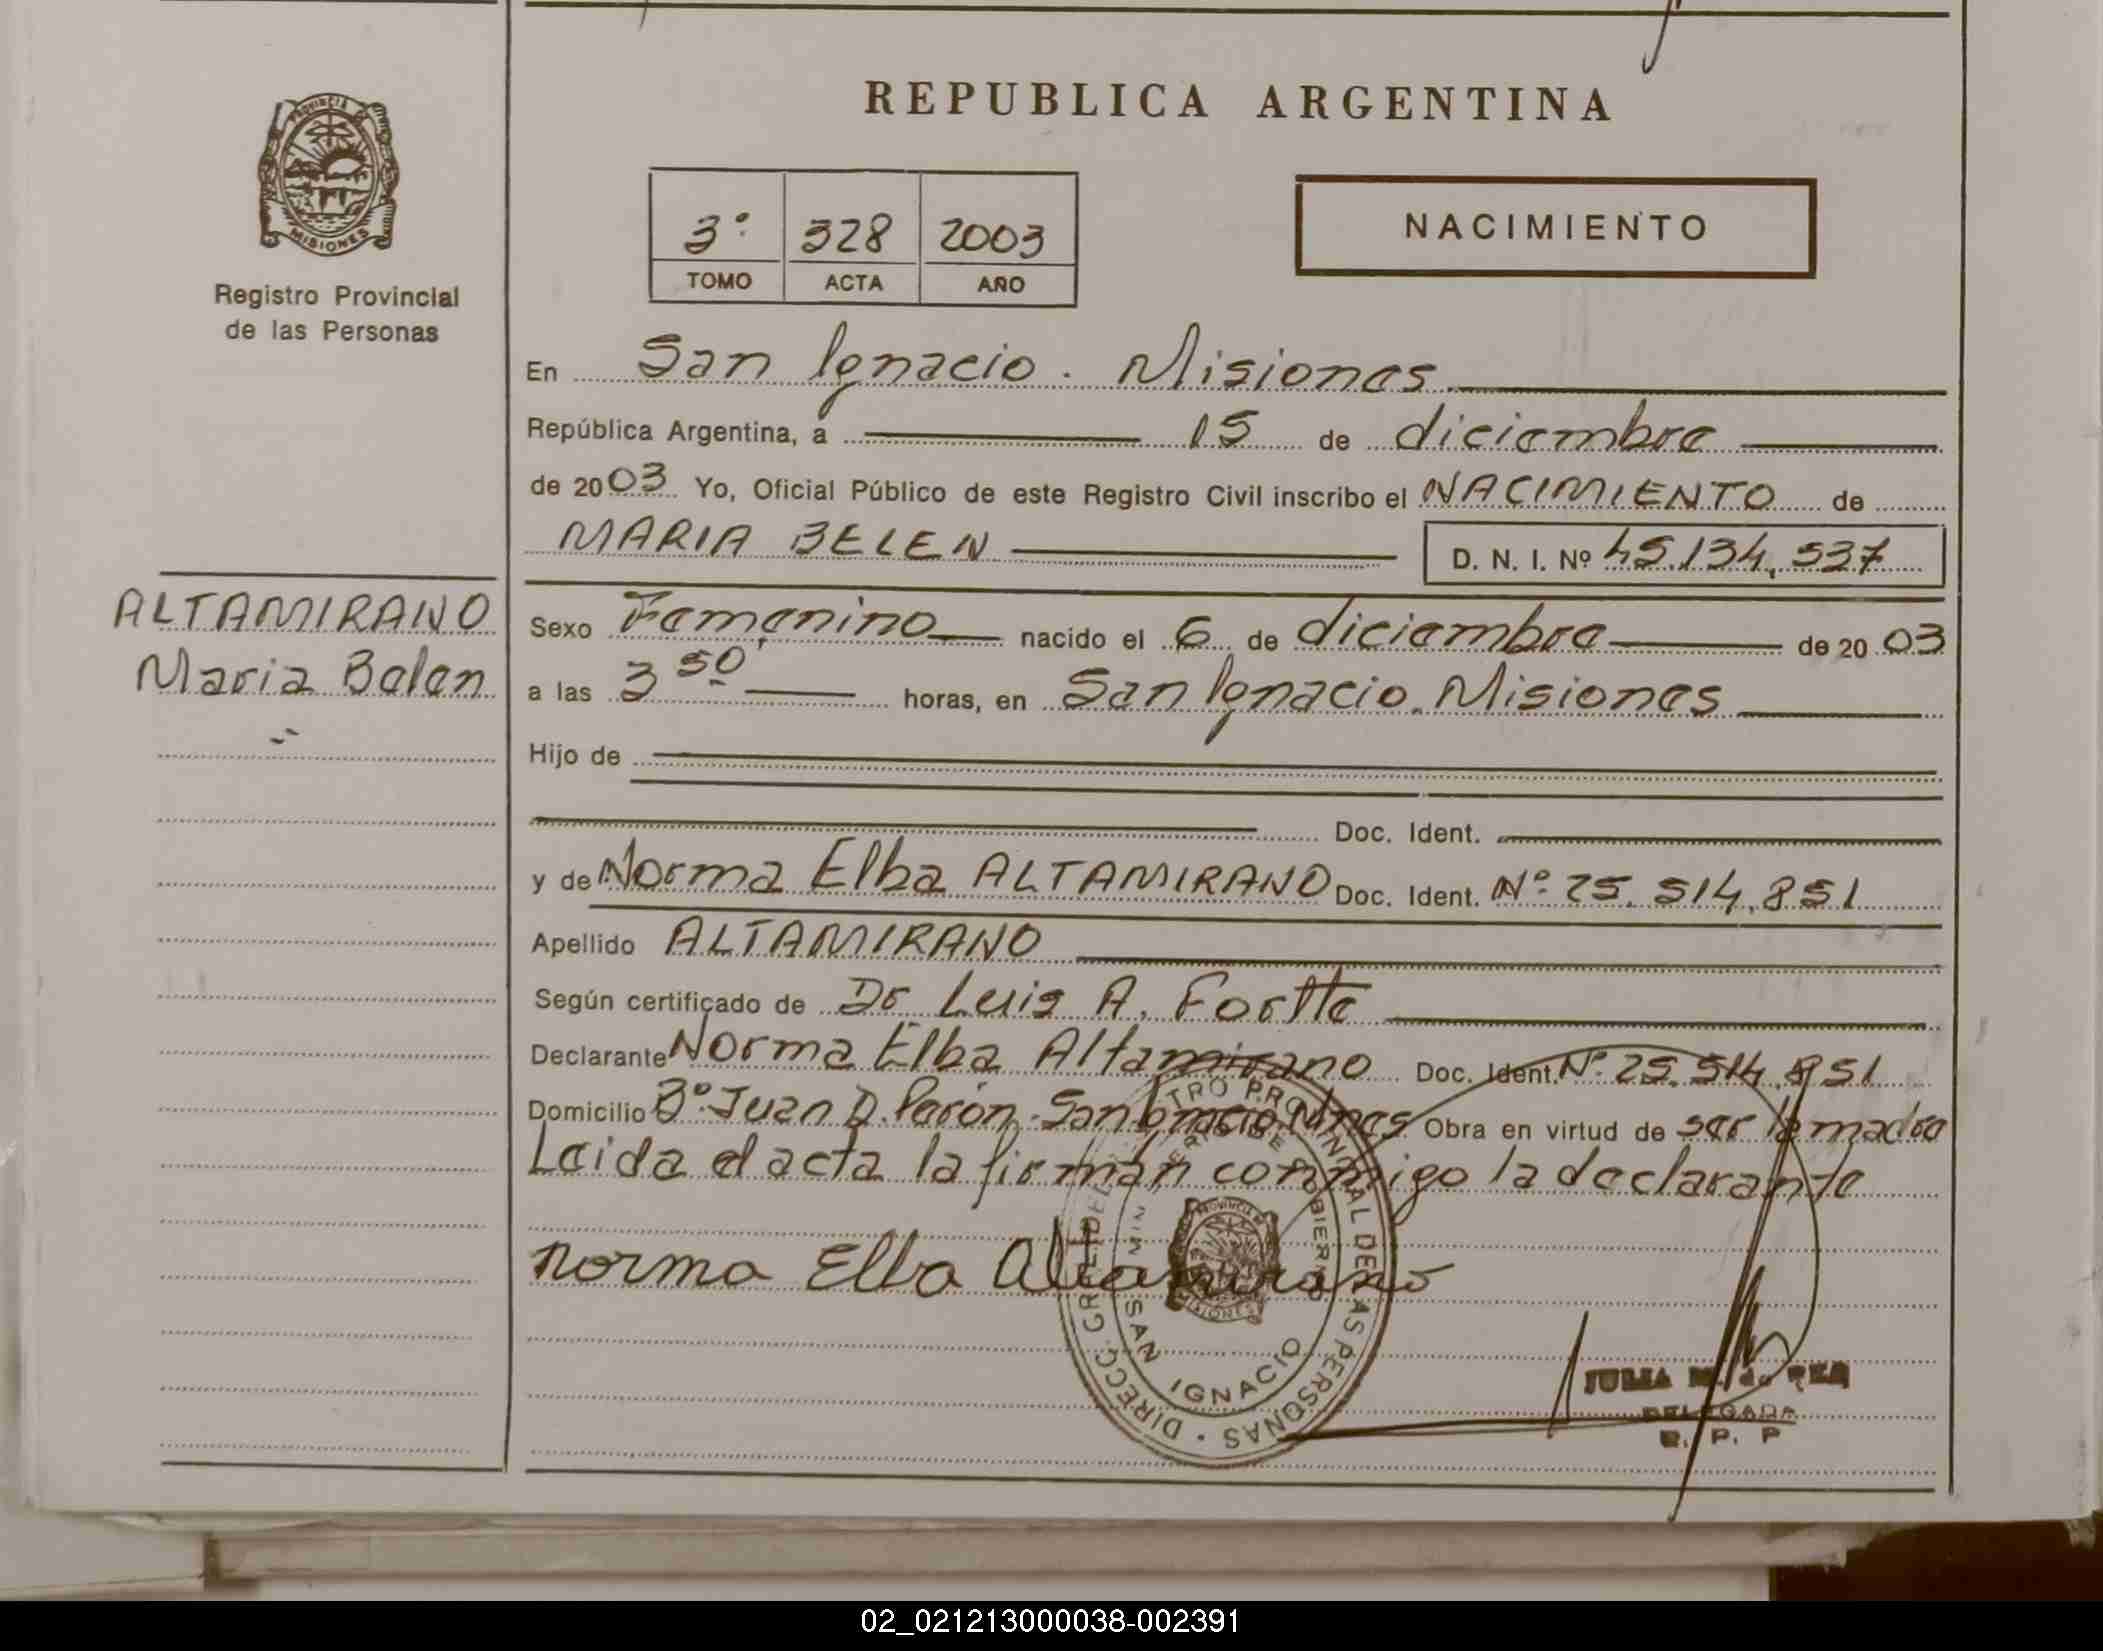 REPUBLICA ARGENTINA
PROVINCIA
MISIONES
Registro Provincial
de las Personas
3º 328 2003
TOMO ACTA AÑO
NACIMIENTO
En San Ignacio. Misiones
República Argentina, a 15 de diciembre
de 2003 Yo, Oficial Público de este Registro Civil inscribo el NACIMIENTO de
MARIA BELEN D. N. I. Nº 45.134.537
ALTAMIRANO
Maria Belen
Sexo Femenino nacido el 6 de diciembre de 2003
a las 3 50 horas, en San Ignacio. Misiones
Hijo de
Doc. Ident.
y de Norma Elba ALTAMIRANO Doc. Ident. Nº 25.514.851
Apellido ALTAMIRANO
Según certificado de Dr Luis A.
Declarante Norma Elba Altamirano Doc. Ident. Nº 25.514.851
Domicilio Bº Juan D. Perón. San Ignacio Mnes Obra en virtud de ser la madre
Leida el acta la firman conmigo la declarante
Norma Elba Altamirano
SAN IGNACIO
JULIA
DELEGADA
R. P. P
02_021213000038-002391